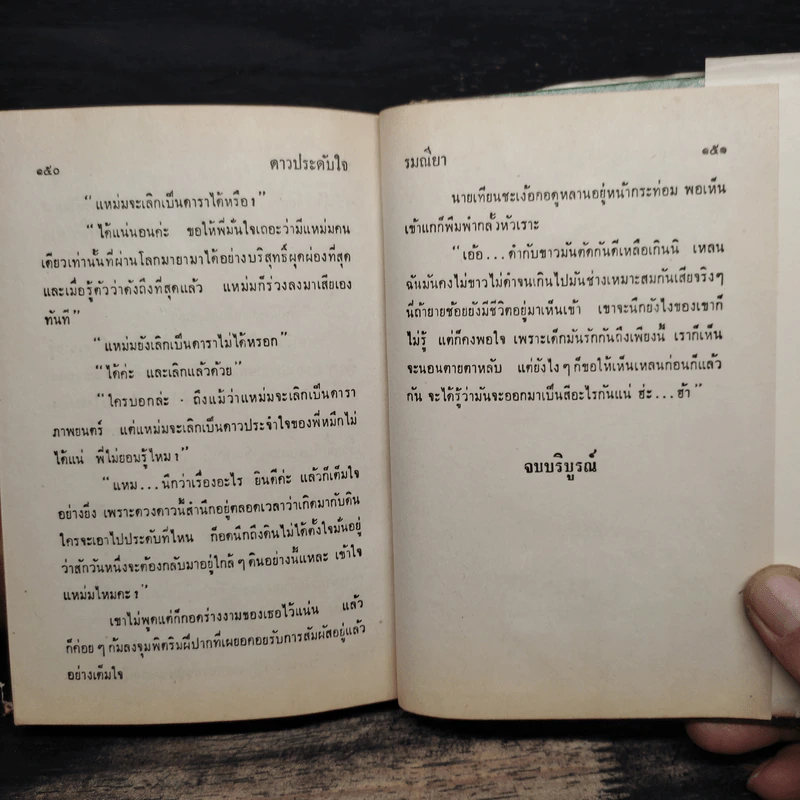 ๑๕๐
ดาวประดับใจ
“แหม่มจะเลิกเป็นดาราได้หรือ?”
“ได้แน่นอนค่ะ ขอให้พี่มั่นใจเถอะว่ามีแหม่มคน
เดียวเท่านั้นที่ผ่านโลกมายามาได้อย่างบริสุทธิ์ผุดผ่องที่สุด
และเมื่อรู้ตัวว่าดังถึงที่สุดแล้ว แหม่มก็ร่วงลงมาเสียเอง
ทันที”
“แหม่มยังเลิกเป็นดาราไม่ได้หรอก”
“ได้ค่ะ และเลิกแล้วด้วย”
“ใครบอกล่ะ ถึงแม้ว่าแหม่มจะเลิกเป็นดารา
ภาพยนตร์ แต่แหม่มจะเลิกเป็นดาวประจำใจของพี่หมึกไม่
ได้แน่ พี่ไม่ยอมรู้ไหม?”
“แหม...นึกว่าเรื่องอะไร ยินดีค่ะ แล้วก็เต็มใจ
อย่างยิ่ง เพราะดวงดาวนี้สำนึกอยู่ตลอดเวลาว่าเกิดมากับดิน
ใครจะเอาไปประดับที่ไหน ก็อดนึกถึงดินไม่ได้ตั้งใจมั่นอยู่
ว่าสักวันหนึ่งจะต้องกลับมาอยู่ใกล้ๆ ดินอย่างนี้แหละ เข้าใจ
แหม่มไหมคะ?”
เขาไม่พูดแต่ก็กอดร่างงามของเธอไว้แน่น แล้ว
ก็ค่อยๆ ก้มลงจุมพิตริมฝีปากที่เผยอคอยรับการสัมผัสอยู่แล้ว
อย่างเต็มใจ
รมณียา
๑๕๑
นายเทียนชะเง้อคอดูหลานอยู่หน้ากระท่อม พอเห็น
เข้าแกก็พึมพำกลั้วหัวเราะ
“เอ้อ...ดำกับขาวมันตัดกันดีเหลือเกินนิ เหลน
ฉันมันคงไม่ขาวไม่ดำจนเกินไปมันช่างเหมาะสมกันเสียจริงๆ
นี่ถ้ายายช้อยยังมีชีวิตอยู่มาเห็นเข้า เขาจะนึกยังไงของเขาก็
ไม่รู้ แต่ก็คงพอใจ เพราะเด็กมันรักกันถึงเพียงนี้ เราก็เห็น
จะนอนตายตาหลับ แต่ยังไงๆ ก็ขอให้เห็นเหลนก่อนก็แล้ว
กัน จะได้รู้ว่ามันจะออกมาเป็นสีอะไรกันแน่ ฮ่ะ...ฮ้า”
จบบริบูรณ์